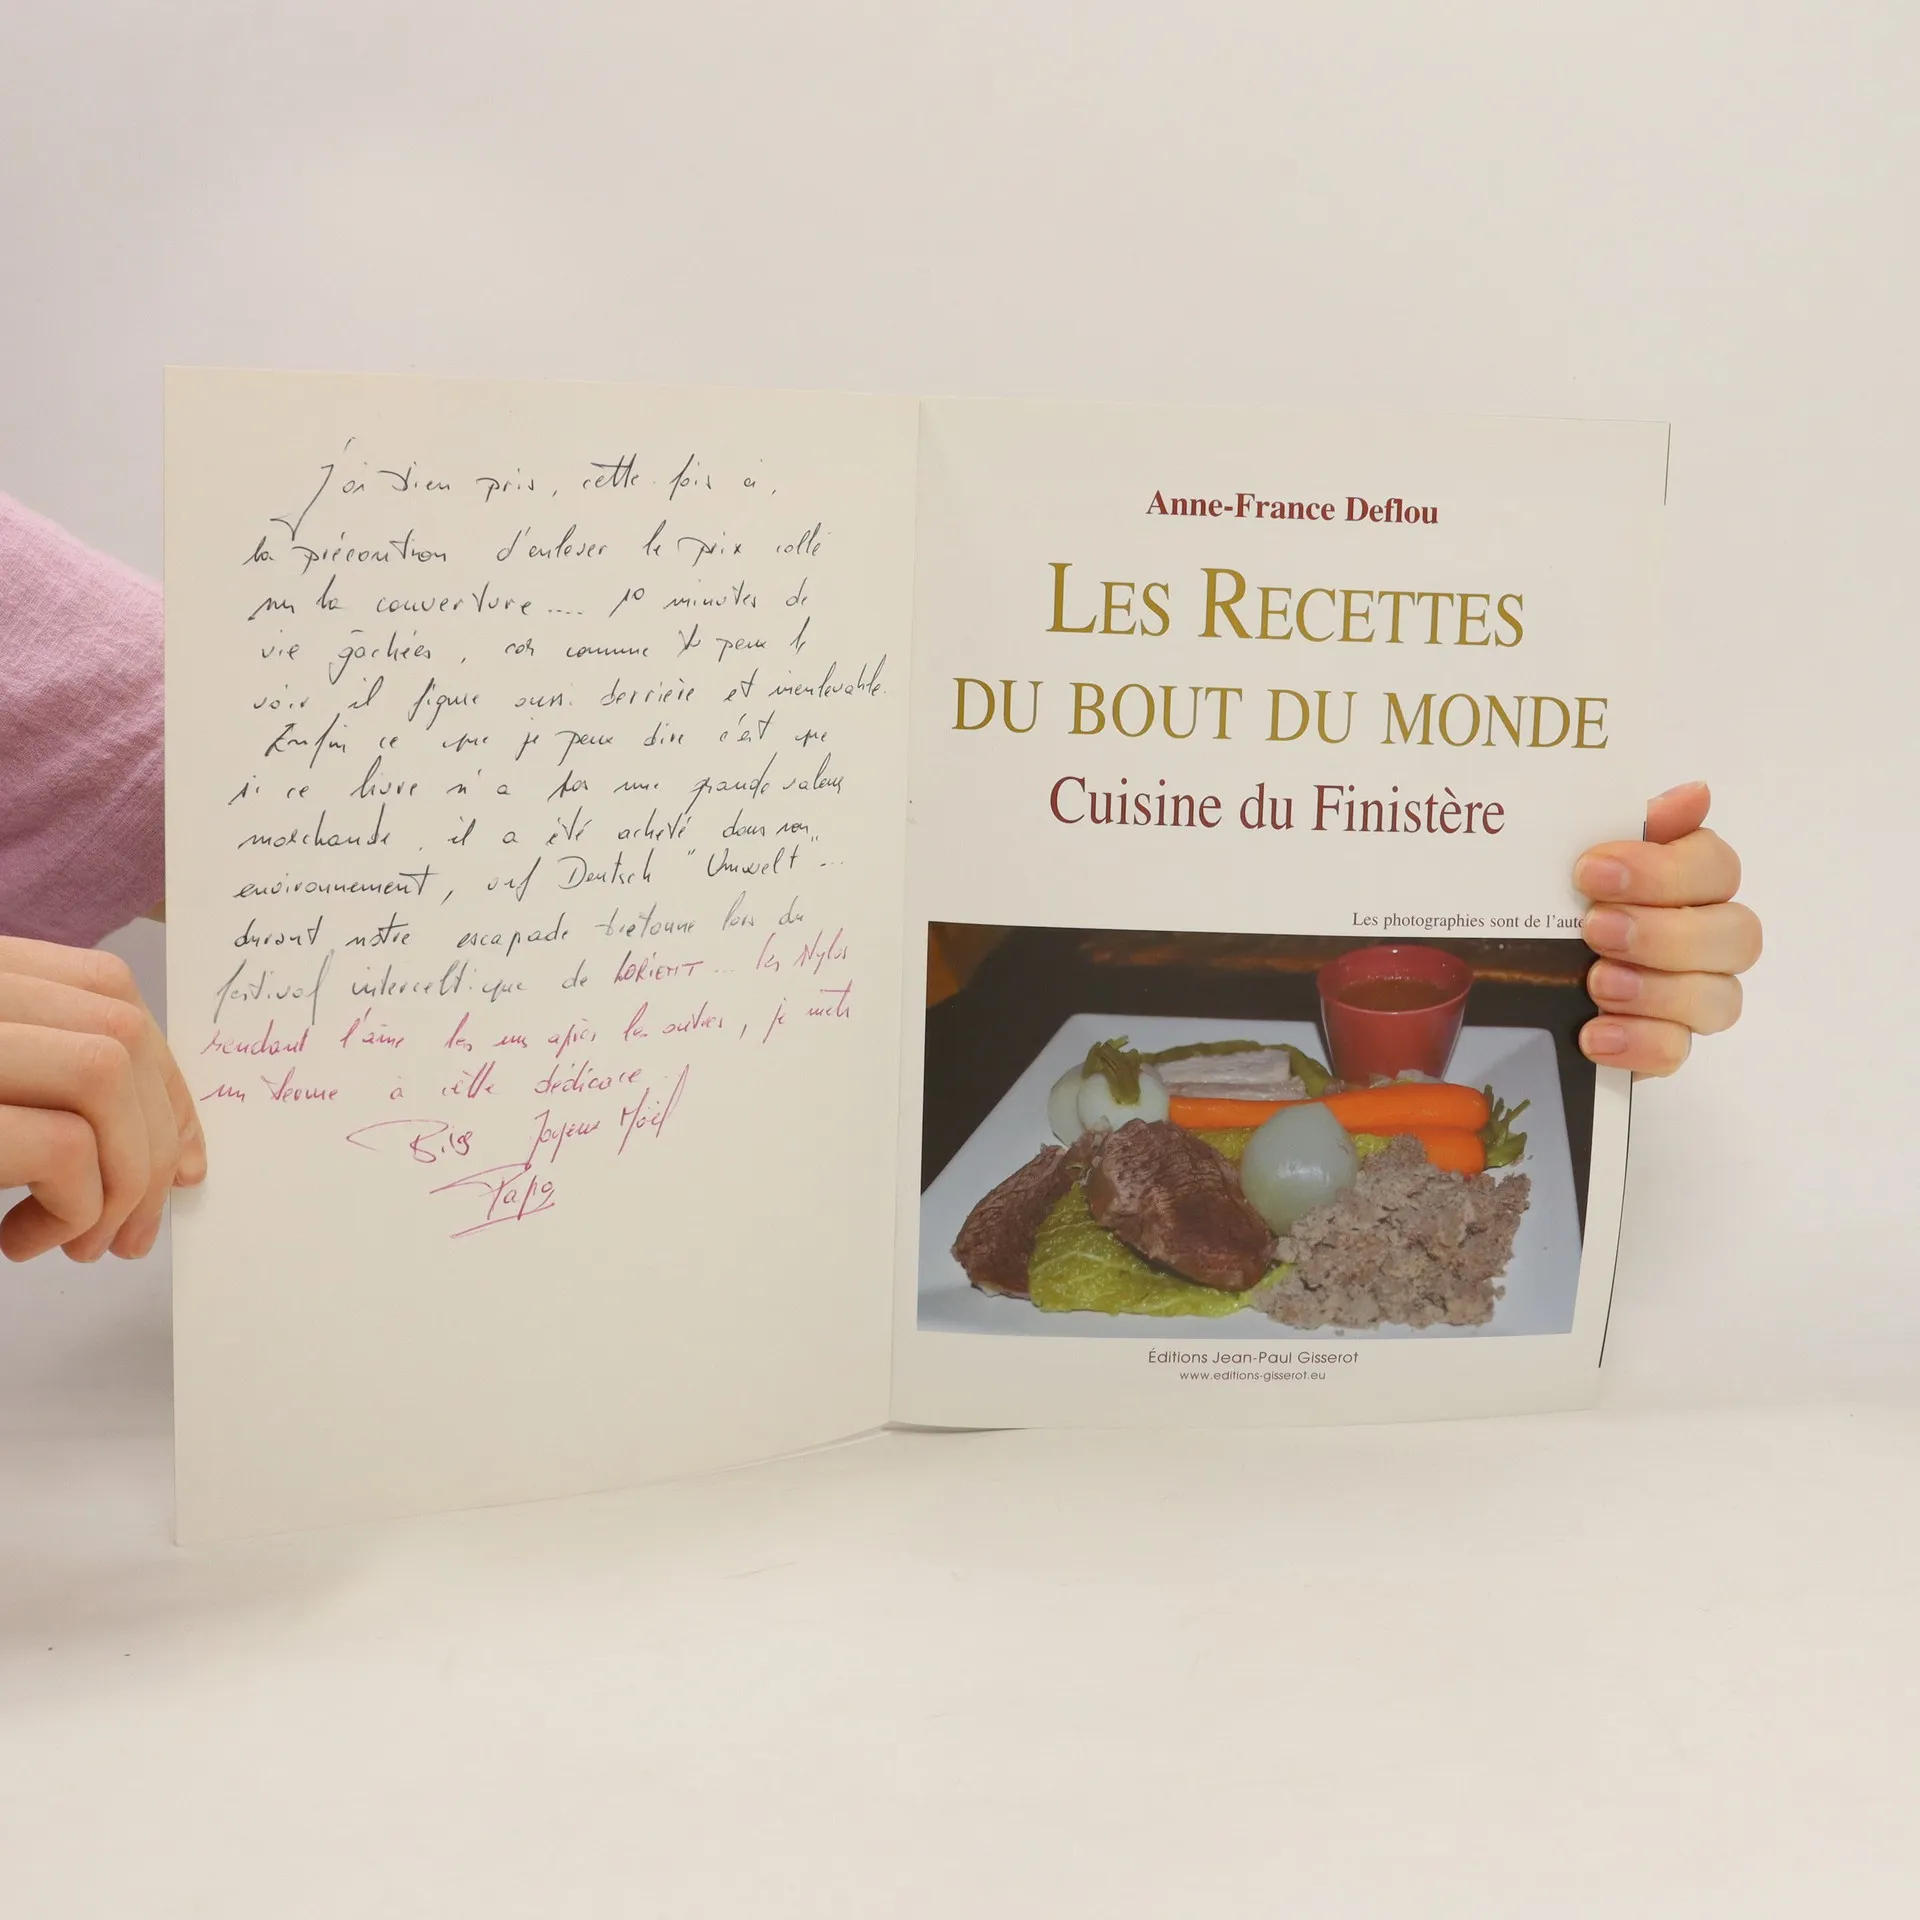 J'ai bien pris, cette fois ci,
la précaution d'enlever le prix collé
sur la couverture.... 10 minutes de
vie gâchées, car comme tu peux le
voir il figure aussi derrière et inenlevable.
Enfin ce que je peux dire c'est que
si ce livre n'a pas une grande valeur
marchande, il a été acheté dans son
environnement, auf Deutsch "Umwelt"...
durant notre escapade bretonne lors du
festival interceltique de LORIENT... les stylos
rendant l'âme les uns après les autres, je mets
un terme à cette dédicace.
Bise Joyeux Noël
Papa
Anne-France Deflou
LES RECETTES
DU BOUT DU MONDE
Cuisine du Finistère
Les photographies sont de l'aute
Éditions Jean-Paul Gisserot
www.editions-gisserot.eu